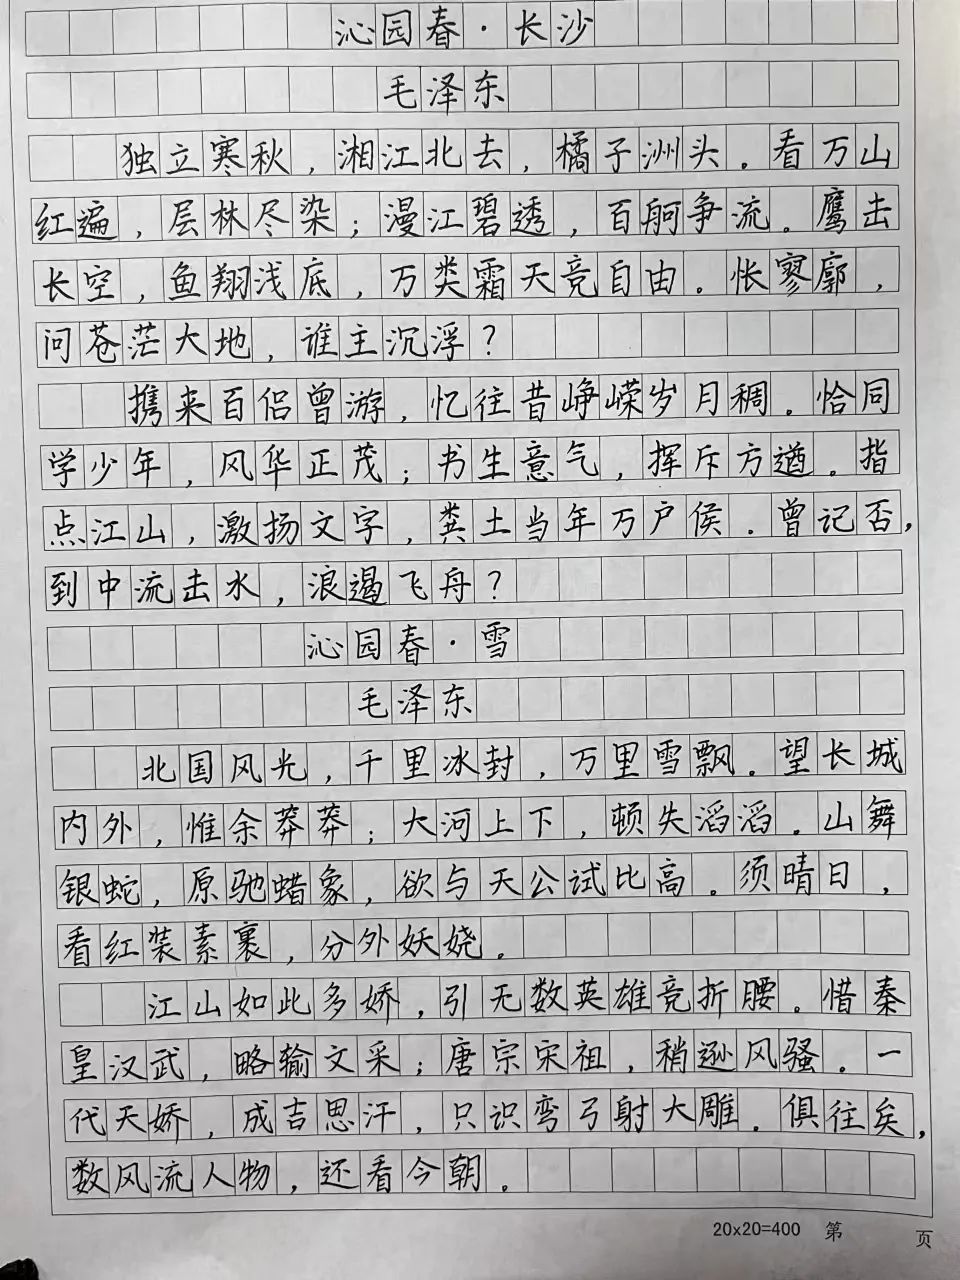 沁园春·长沙
毛泽东
独立寒秋，湘江北去，橘子洲头。看万山
红遍，层林尽染；漫江碧透，百舸争流。鹰击
长空，鱼翔浅底，万类霜天竞自由。怅寥廓，
问苍茫大地，谁主沉浮？
携来百侣曾游，忆往昔峥嵘岁月稠。恰同
学少年，风华正茂；书生意气，挥斥方遒。指
点江山，激扬文字，粪土当年万户侯。曾记否，
到中流击水，浪遏飞舟？
沁园春·雪
毛泽东
北国风光，千里冰封，万里雪飘。望长城
内外，惟余莽莽；大河上下，顿失滔滔。山舞
银蛇，原驰蜡象，欲与天公试比高。须晴日，
看红装素裹，分外妖娆。
江山如此多娇，引无数英雄竞折腰。惜秦
皇汉武，略输文采；唐宗宋祖，稍逊风骚。一
代天娇，成吉思汗，只识弯弓射大雕。俱往矣，
数风流人物，还看今朝。
20×20=400 第 页